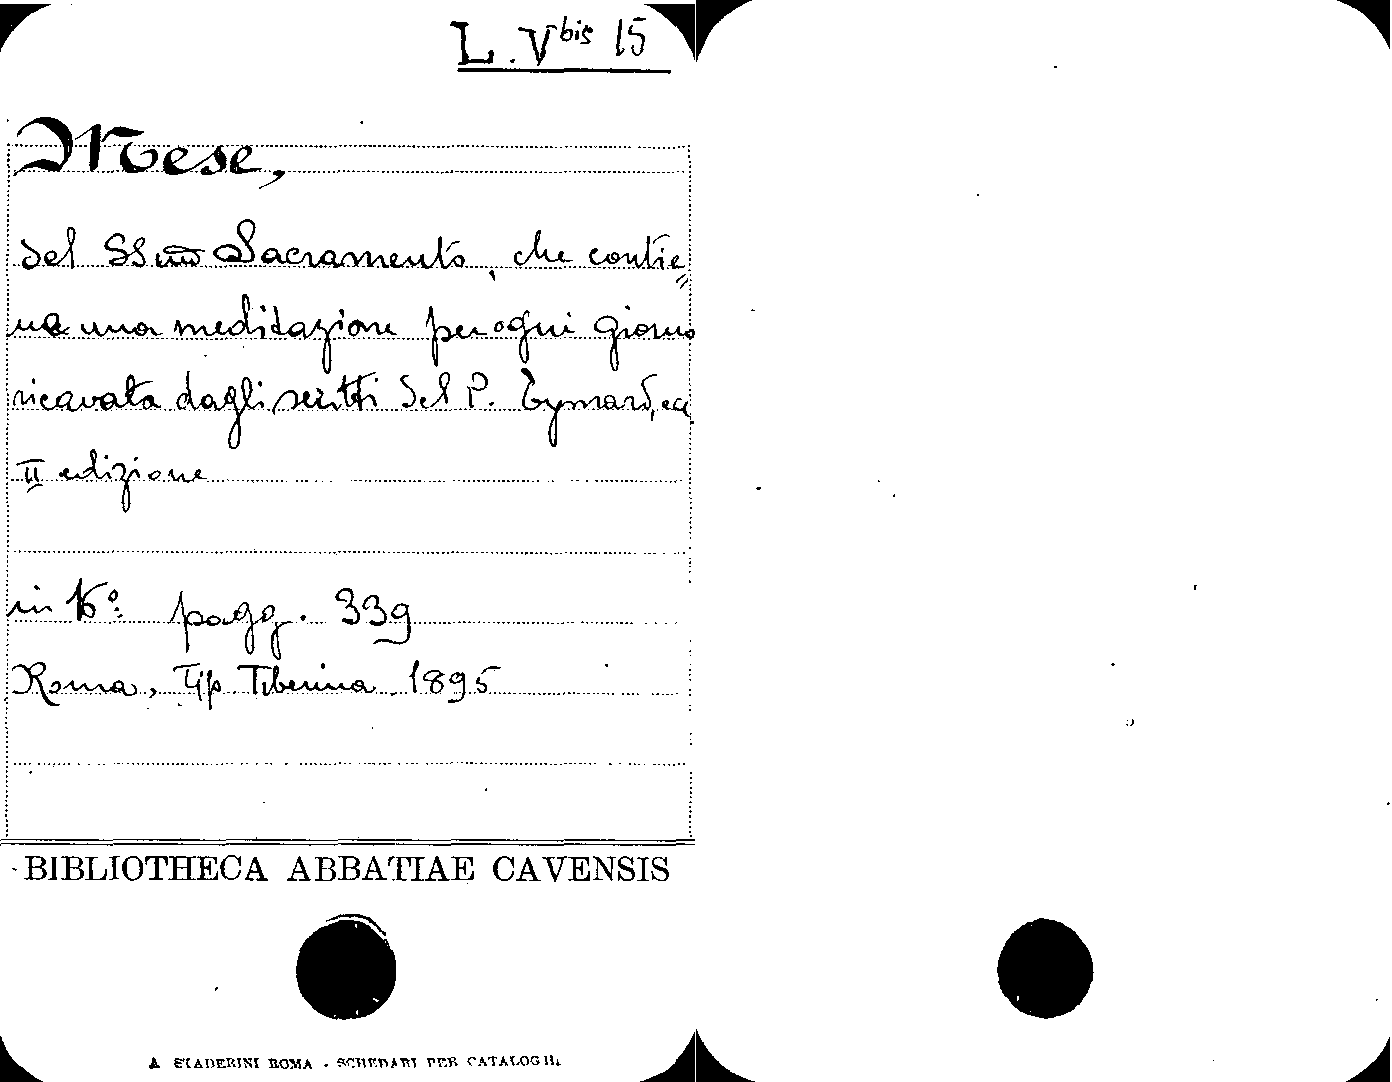 L. V bis 15
Mese,
del SSmo Sacramento, che contie=
ne una meditazione per ogni giorno
ricavata dagli scritti del P. Eymard, ecc
II edizione
in 16º pagg. 339
Roma, Tip Tiberina 1895
BIBLIOTHECA ABBATIAE CAVENSIS
A STADERINI ROMA - SCHEDARI PER CATALOGHI